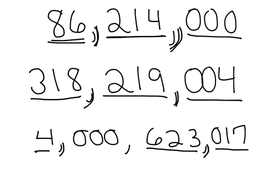 86,214,000
318,219,004
4,000,623,017